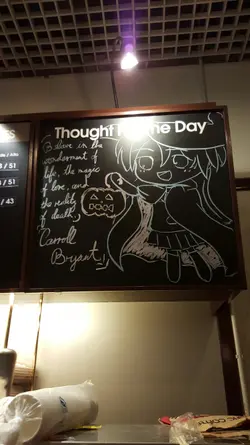 Thought For The Day
Believe in the
wonderment of
life, the magic
of love, and
the reality
of death.
Carroll
Bryant
/ 51
/ 51
/ 43